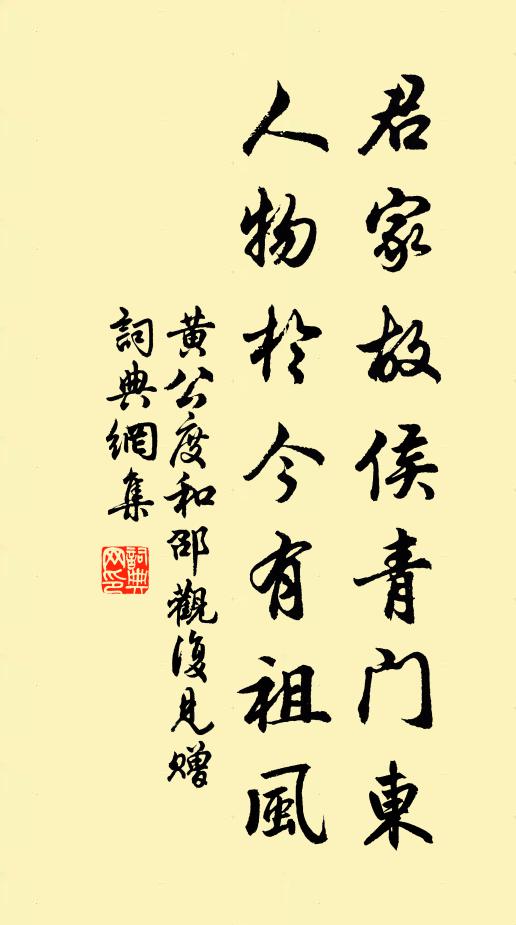 君家故侯青門東
人物於今有祖風
黃公度和邵觀復見贈
詞典網集
詞典網印